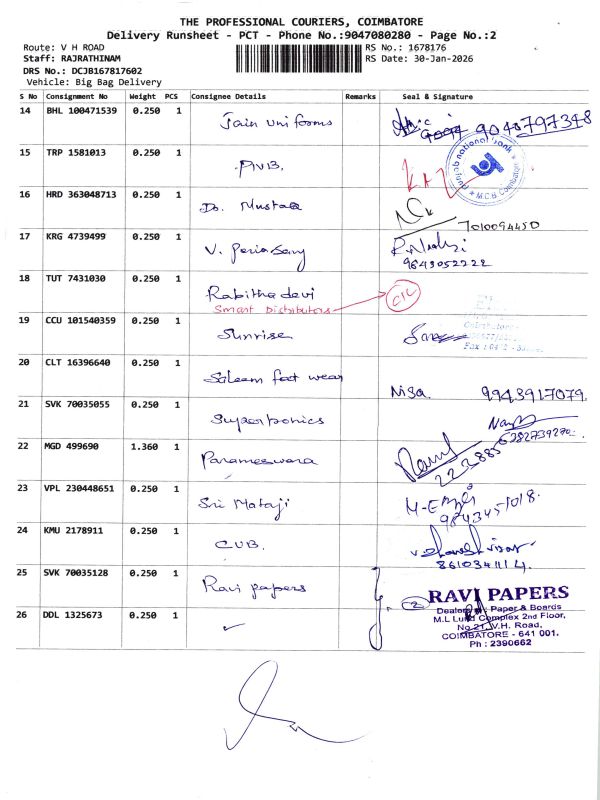 THE PROFESSIONAL COURIERS, COIMBATORE
Delivery Runsheet - PCT - Phone No.:9047080280 - Page No.:2
Route: V H ROAD
RS No.: 1678176
Staff: RAJRATHINAM
RS Date: 30-Jan-2026
DRS No.: DCJB167817602
Vehicle: Big Bag Delivery
S No Consignment No Weight PCS Consignee Details Remarks Seal & Signature
14 BHL 100471539 0.250 1 Jain uniforms 9040797348
15 TRP 1581013 0.250 1 PNB. punjab national bank M.C.B. Coimbatore
16 HRD 363048713 0.250 1 Dr. Mustafa 7010094450
17 KRG 4739499 0.250 1 V. Periasamy 9843052222
18 TUT 7431030 0.250 1 Rabitha devi
Smart Distributors CTC
19 CCU 101540359 0.250 1 Sunrise Coimbatore
20 CLT 16396640 0.250 1 Saleem foot wear Nisa. 9943917079.
21 SVK 70035055 0.250 1 Supertronics 6382739270.
22 MGD 499690 1.360 1 Parameswara
23 VPL 230448651 0.250 1 Sri Mataji 9843451018.
24 KMU 2178911 0.250 1 CUB. 8610341114.
25 SVK 70035128 0.250 1 Ravi papers 2
RAVI PAPERS
Dealers in: Paper & Boards
M.L Lund Complex 2nd Floor,
No.21, V.H. Road,
COIMBATORE - 641 001.
Ph : 2390662
26 DDL 1325673 0.250 1